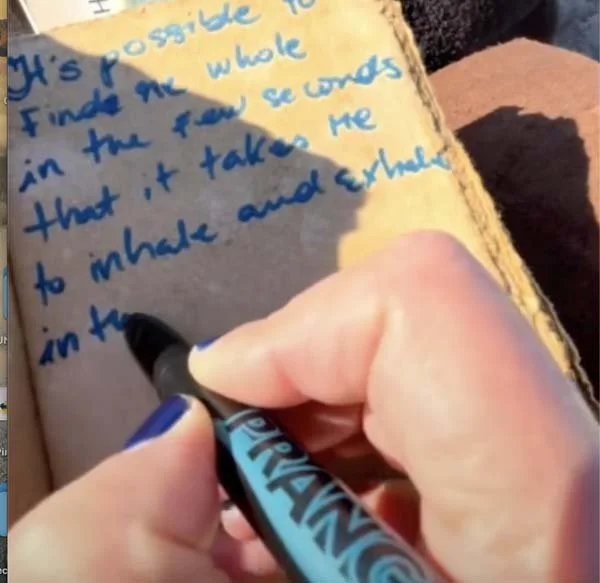 It's possible to
Finde me whole
in the few seconds
that it takes me
to inhale and exhale
in t
PRANG